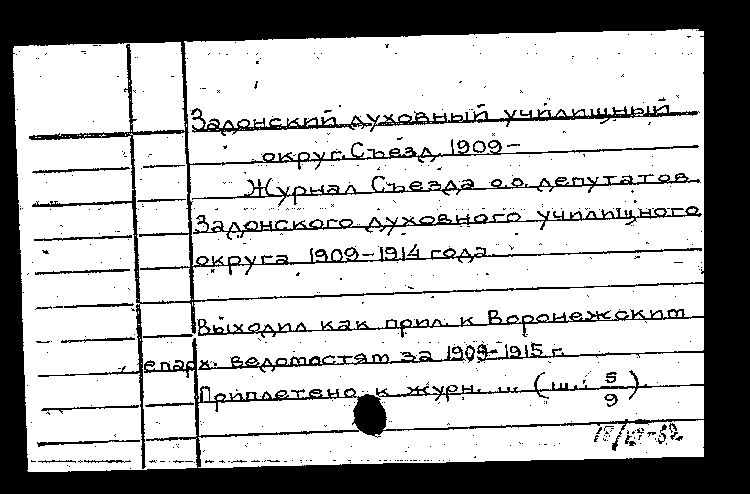 Задонский духовный училищный
округ. Съезд. 1909-
Журнал Съезда о.о. депутатов
Задонского духовного училищного
округа 1909-1914 года.
Выходил как прил. к Воронежским
епарх. ведомостям за 1909-1915 г.
Приплетено к журн. ... (ш.: 5/9).